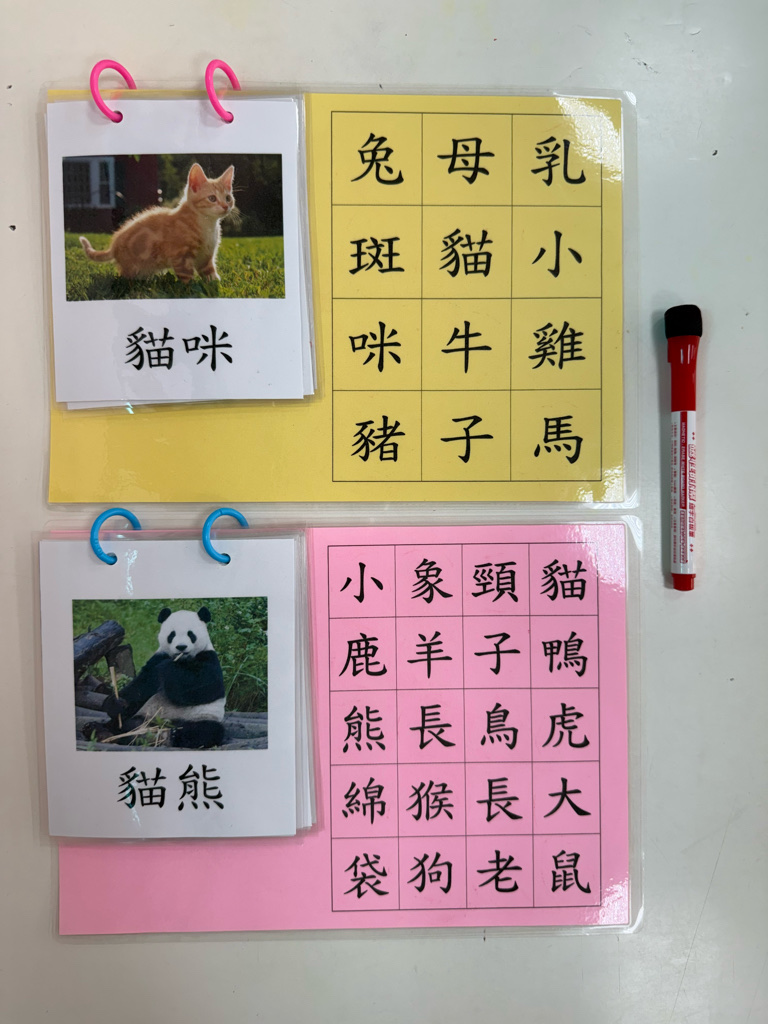 貓咪
兔 母 乳
斑 貓 小
咪 牛 雞
豬 子 馬
貓熊
小 象 頸 貓
鹿 羊 子 鴨
熊 長 鳥 虎
綿 猴 長 大
袋 狗 老 鼠